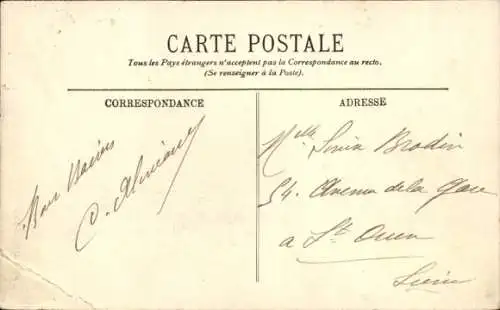 CARTE POSTALE
Tous les Pays étrangers n'acceptent pas la Correspondance au recto.
(Se renseigner à la Poste).
CORRESPONDANCE
ADRESSE
Bon
C.
Mlle Brodin
54. Avenue de la Gare
a St Ouen
Seine